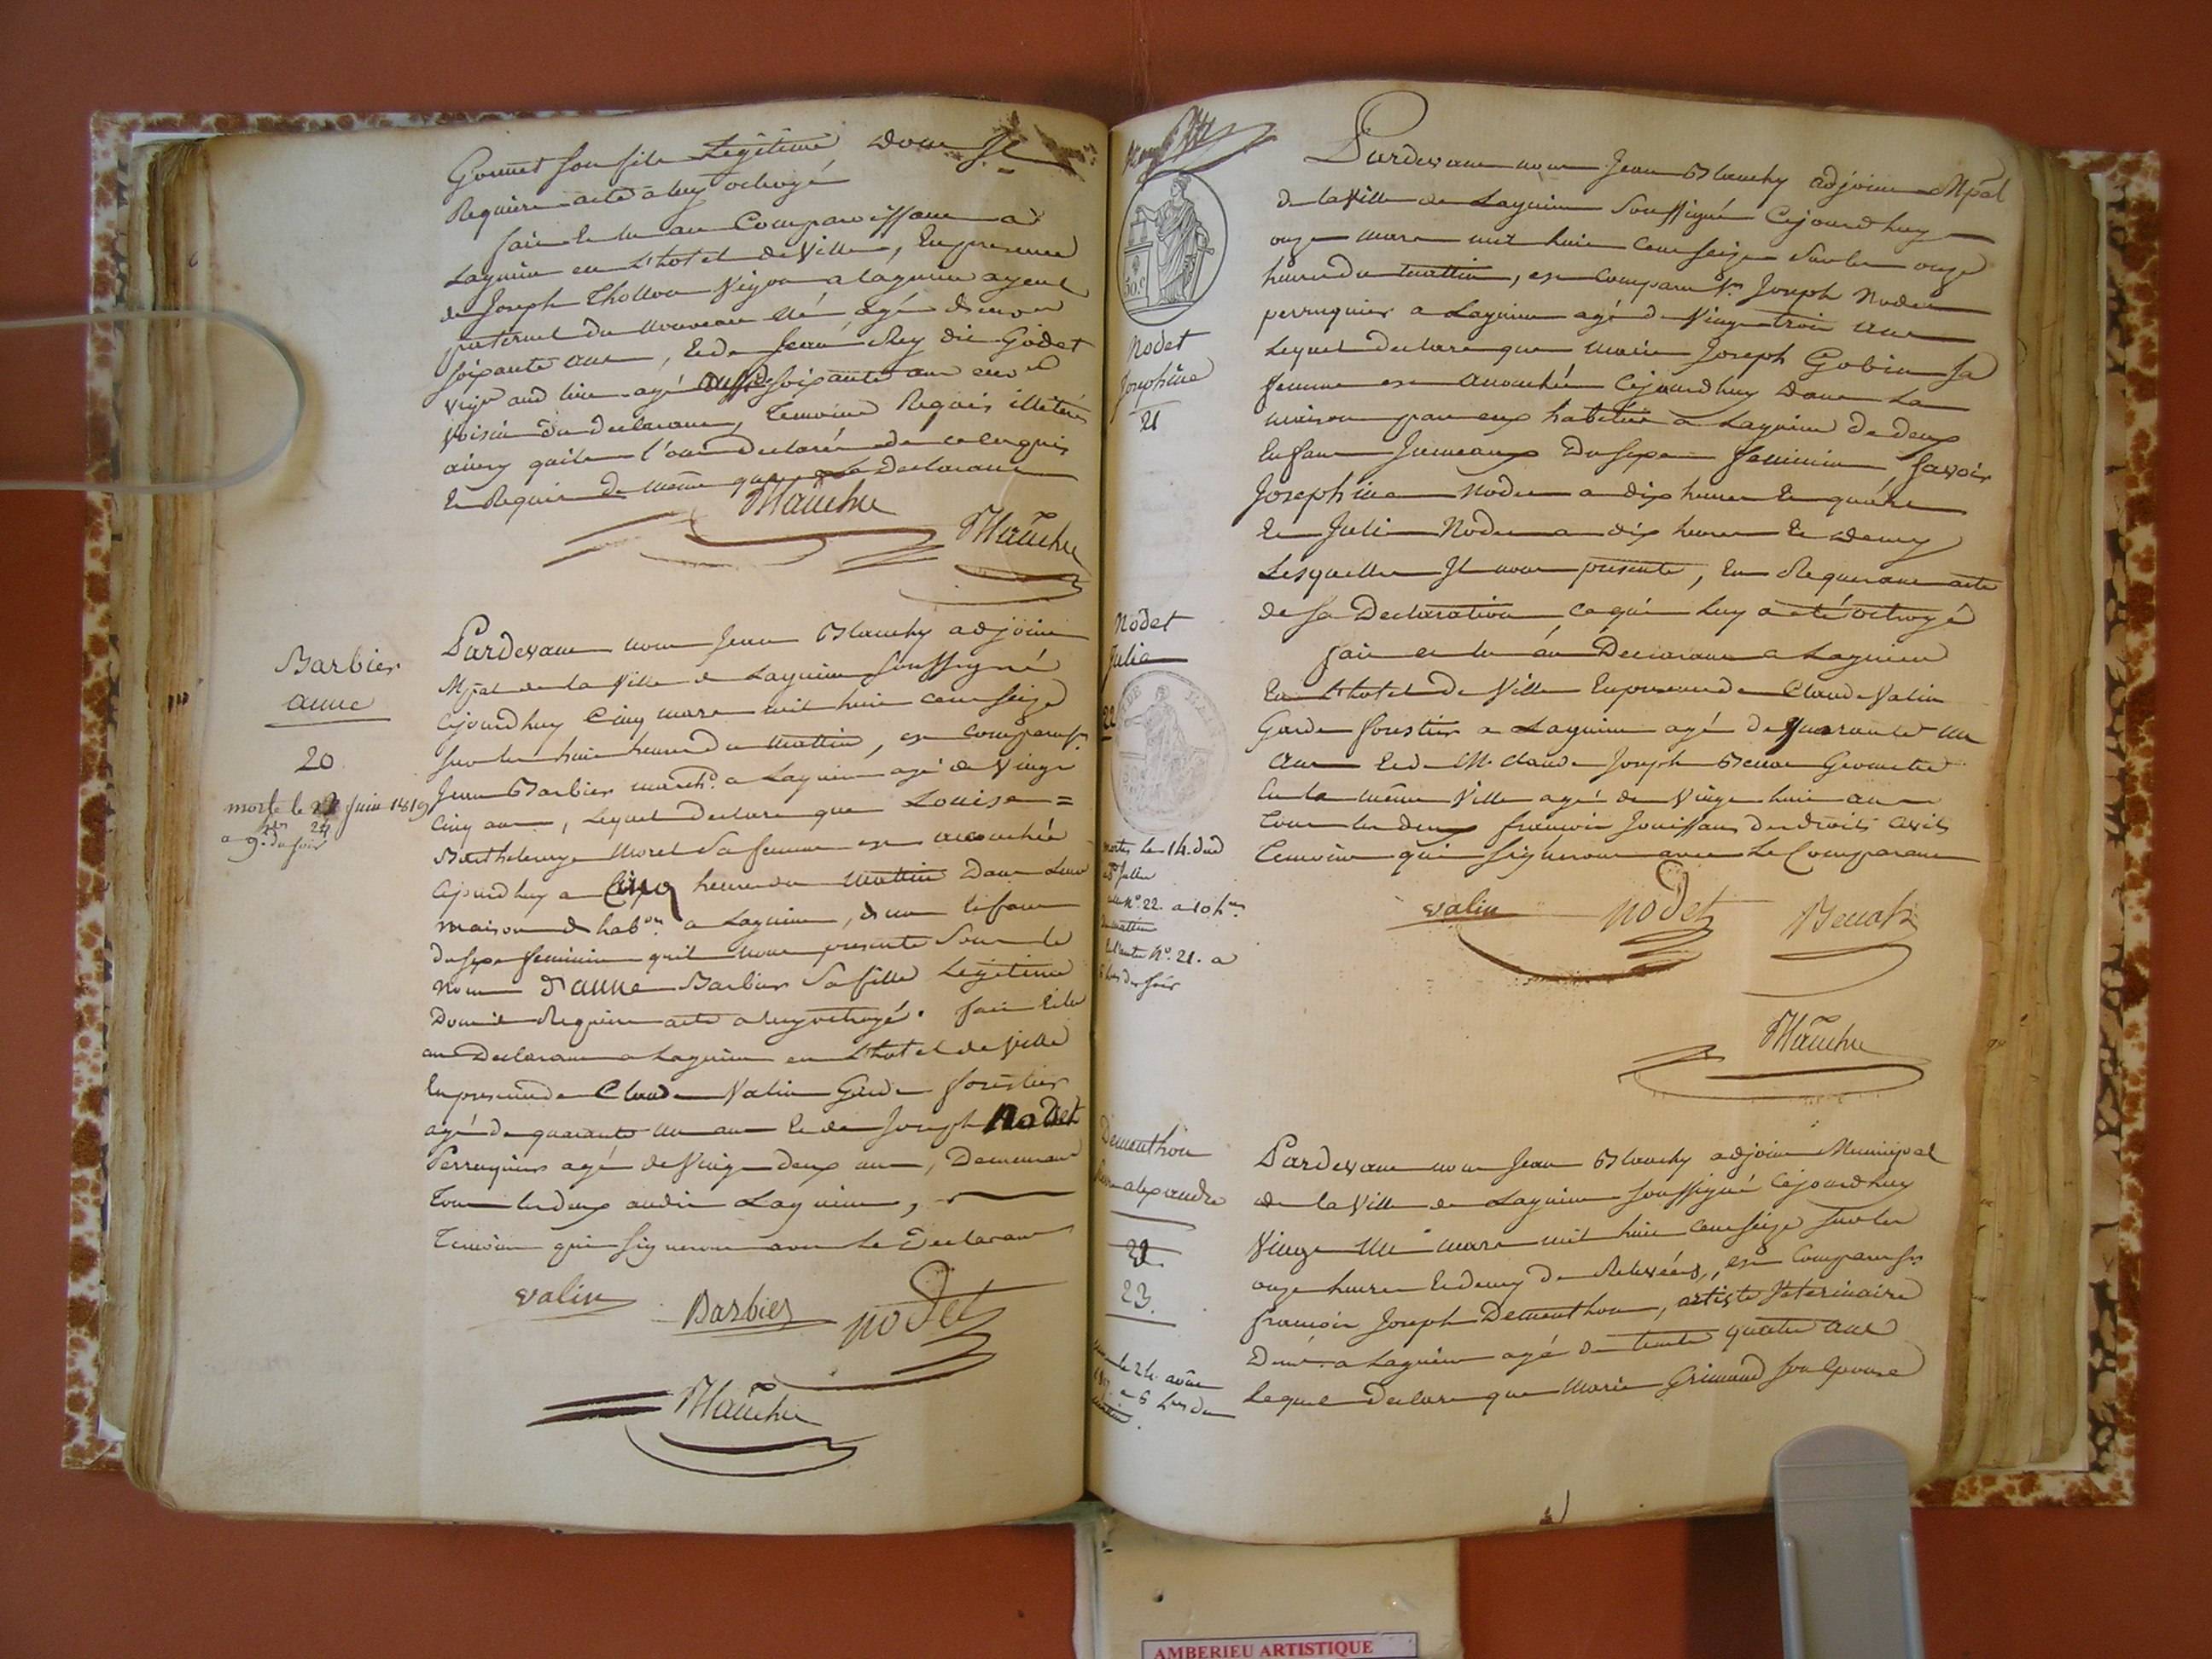 Gonnet son fils Légitime dont Il
Requiert acte a luy octroyé
fait et lu au Comparoissant a
Lagnieu en L'hotel de Ville, En presence
de Joseph Thollon Vigon a lagnieu ayeul
paternel du nouveau né agé d'env.on
soixante ans, et de Jean Rey dit Godet
vig.on aud lieu agé aussi soixante ans env.on
Voisin du declarant, témoins Requis illiterés
ainsy qu'ils l'ont declaré de ce enquis
et Requis de même que le Declarant
Blanchy
Blanchy
Barbier
anne
20
morte le 23 juin 1819
24
a 9 h.res du soir
Pardevant nous Jean Blanchy adjoint
Mpal de la Ville de Lagnieu soussigné
Cejourdhuy Cinq mars mil huit cent seize
sur les huit heures du mattin, est comparu s.r
Jean Barbier march.d a Lagnieu agé de Vingt
Cinq ans, Lequel declare que Louise=
Barthelemye Morel Sa femme est accouchée
Cejourdhuy a Cinq heures du mattin Dans leur
maison d'hab.on a Lagnieu, d'un Enfant
du sexe feminin qu'il nous presente Sous le
nom d'anne Barbier Sa fille Legitime
Dont il Requiert acte a luy octroyé. fait et lu
au Declarant a Lagnieu en L'hotel de Ville
En presence de Claude Valin Garde forestier
agé de quarante un ans et de Joseph Nodet
Perruquier agé de Vingt deux ans, Demeurant
tous les deux audit Lagnieu,
Temoins qui signeront avec Le Declarant
valin Barbier nodet
Blanchy
50.c
Nodet
Josephine
21
Nodet
Julie
22
mortes le 14. dud
N.o 22. a 10 h.res
du mattin
Et l'autre N.o 21. a
h.res du soir
Pardevant nous Jean Blanchy adjoint Mpal
de la Ville de Lagnieu Soussigné Cejourdhuy
onze mars mil huit cent seize Sur les onze
heures du mattin, est comparu s.r Joseph Nodet
perruquier a Lagnieu agé de Vingt trois ans
Lequel declare que Marie Joseph Gobin sa
femme est accouchée Cejourdhuy Dans La
maison par eux habitée a Lagnieu de deux
Enfans Jumeaux Du sexe feminin Savoir
Josephine Nodet a dix heures et quart
et Julie Nodet a dix heures et demy
Lesquelles Il nous presente, en Requerant acte
de sa Declaration ce qui Luy a eté octroyé
fait et lu au Declarant a Lagnieu
En L'hotel de Ville En presence de Claude Valin
Garde forestier a Lagnieu agé de quarante un
ans et de M. Claude Joseph Benoit Geometre
En la même Ville agé de Vingt huit ans
tous les deux françois jouissans des droits Civils
temoins qui signeront avec Le Comparant
valin nodet Benoit
Blanchy
Dementhon
alexandre
21
23.
le 24. août
a 6 h.res du
mattin.
Pardevant nous Jean Blanchy adjoint Municipal
de la Ville de Lagnieu soussigné Cejourdhuy
Vingt un mars mil huit cent seize sur les
onze heures et demy de Relevées, est Comparu s.r
françois Joseph Dementhon, artiste Veterinaire
Dem.t a Lagnieu agé de trente quatre ans
Lequel declare que Marie Grimand son Epouse
AMBERIEU ARTISTIQUE